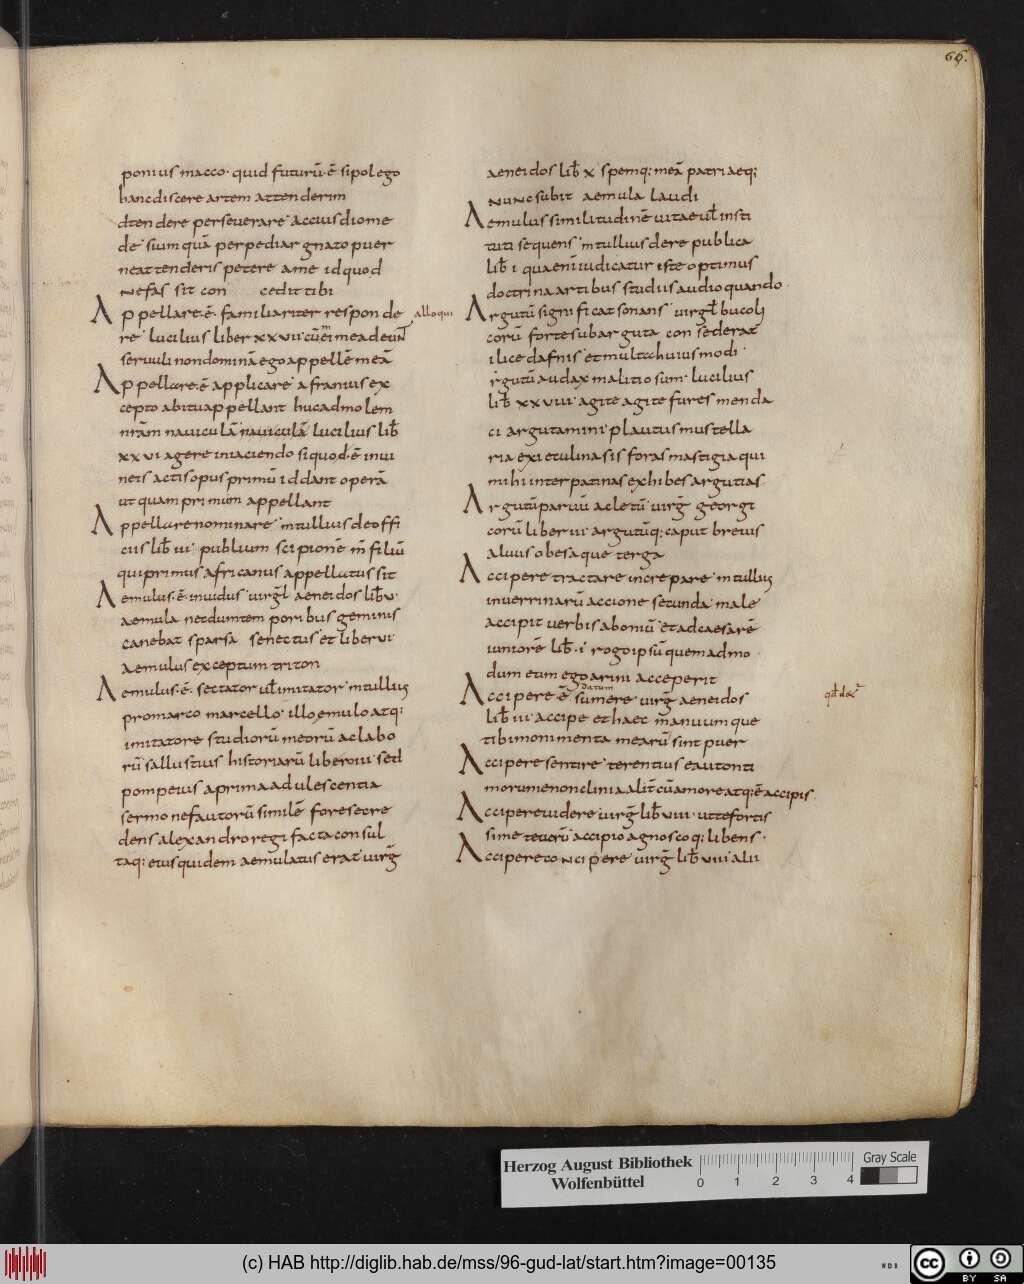 66.
ponius macco· quid futurū·ē sipol ego
hanc discere artem attenderim
dtendere perseuerare accius diome
de sium quā perpediar gnato puer
neattenderis petere ame id quod
nefas sit con cedit tibi
Appellare·ē· familiariter respon de
alloqui
re lucilius liber xxvii· cū mea deun
seruuli non dominā ego appellē meā
Appellare·ē applicare afranius ex
cepto abitu appellant huc ad molem
nrām nauiculā nauiculā lucilius lib̄
xxvi agere in iaciendo si quod·ē inui
neis actis opus primū id dant operā
ut quam primum appellant
Appellare nominare m tullius de offi
ciis lib̄ iii publium scipionē m̄ filiū
qui primus africanus appellatus sit
Aemulus·ē· inuidus uirgl aeneidos lib̄ v·
aemula necdum tem poribus geminis
canebat sparsa senectus et liber vi
aemulus exceptum triton
Aemulus·ē· sectator ul̄ imitator m tullius
pro marco marcello· illo emulo atq;
imitatore studiorū meorū ac labo
rū sallustius historiarū libero iii sed
pompeius a prima adulescentia
sermone fautorū similē fore se cre
dens alexandro regi facta consul
taq; eius quidem aemulatus erat uirg̅
aeneidos lib̄ x spemq; meā patri aeq;
nunc subit aemula laudi
Aemulus similitudinē uitae ul̄ insti
tuti sequens m tullius de re publica
lib̄ i quaenī iudicatur iste optimus
doctrina artibus studiis audio quando
Argutū significat sonans uirgl̄ bucoli
corū forte sub arguta con sederat
ilice dafnis et multa huius modi
rgutū audax malitiosum· lucilius
lib̄ xxviii· agite agite fures menda
ci argutamini plautus mustella
ria exi et ulina sis foras mastigia qui
mihi inter patinas exhibes argutias
Argutū paruū ac letū uirg̅ georgi
corū liber iii argutūq; caput breuis
aluus obesa que terga
Accipere tractare increpare m tullius
in uerrinarū accione secunda male
accipit uerbis abomiū et ad caesarē
iuniorē lib̄· i· rogo ipsū quem admo
dum eum ego arimi acceperit
Accipere·ē· sumere uirg̅ aeneidos
datum
qđ de
lib̄ iii· accipe et haec manuum que
tibi monimenta mearū sint puer
Accipere sentire terentius eautonti
morumenon clinia alit cū amore atq;ē accipis·
Accipere uidere uirg̅ lib̄ viii· ut te fortis
sime teucrū accipio agnosco q; libens·
Accipere concipere uirg̅ lib̄ viii alii
Herzog August Bibliothek
Wolfenbüttel
0 1 2 3 4
Gray Scale
(c) HAB http://diglib.hab.de/mss/96-gud-lat/start.htm?image=00135
WDB
cc BY SA